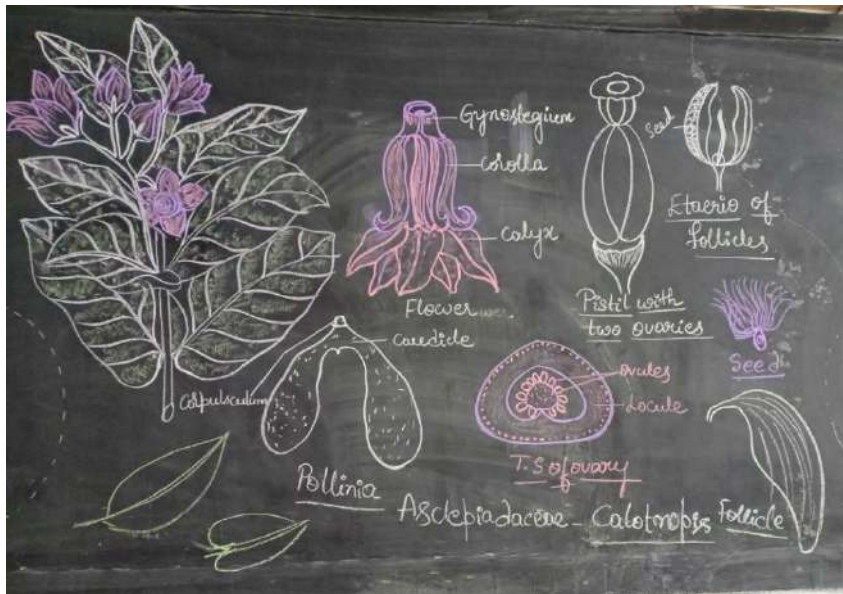 Gynostegium
corolla
calyx
Flower
Seed
Etaerio of
follicles
Pistil with
two ovaries
Seed
caudicle
Corpusculum
Pollinia
ovules
Locule
T.S of ovary
Asclepiadaceae - Calotropis
Follicle